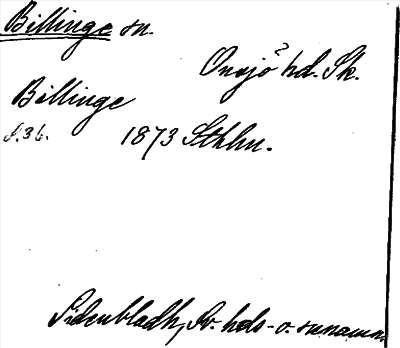 Billinge sn.
Onsjö hd. Sk.
Billinge
s. 36. 1873 Sthlm.
Sidenbladh, Sv. hds- o. sunamn.